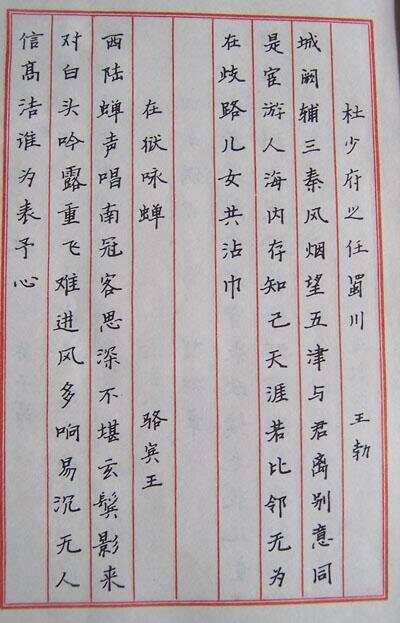 杜少府之任蜀川 王勃
城阙辅三秦风烟望五津与君离别意同
是宦游人海内存知己天涯若比邻无为
在歧路儿女共沾巾
在狱咏蝉 骆宾王
西陆蝉声唱南冠客思深不堪玄鬓影来
对白头吟露重飞难进风多响易沉无人
信高洁谁为表予心